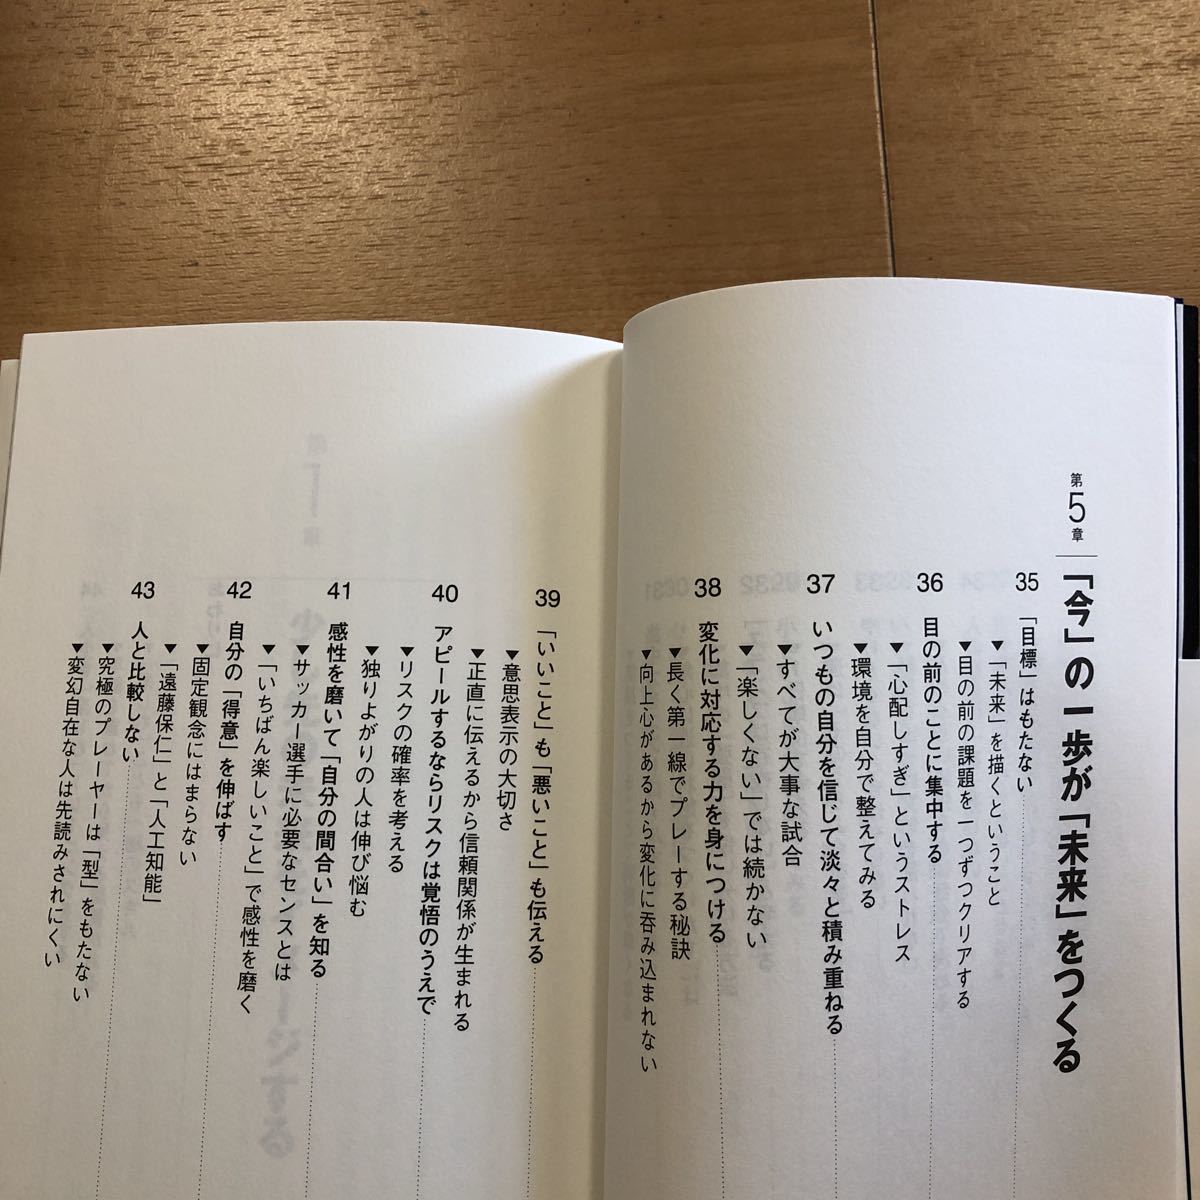 第5章
「今」の一歩が「未来」をつくる
35 「目標」はもたない
▼「未来」を描くということ
▼目の前の課題を一つずつクリアする
36 目の前のことに集中する
▼「心配しすぎ」というストレス
▼環境を自分で整えてみる
37 いつもの自分を信じて淡々と積み重ねる
▼すべてが大事な試合
▼「楽しくない」では続かない
38 変化に対応する力を身につける
▼長く第一線でプレーする秘訣
▼向上心があるから変化に呑み込まれない
39 「いいこと」も「悪いこと」も伝える
▼意思表示の大切さ
▼正直に伝えるから信頼関係が生まれる
40 アピールするならリスクは覚悟のうえで
▼リスクの確率を考える
▼独りよがりの人は伸び悩む
41 感性を磨いて「自分の間合い」を知る
▼サッカー選手に必要なセンスとは
▼「いちばん楽しいこと」で感性を磨く
42 自分の「得意」を伸ばす
▼固定観念にはまらない
▼「遠藤保仁」と「人工知能」
43 人と比較しない
▼究極のプレーヤーは「型」をもたない
▼変幻自在な人は先読みされにくい